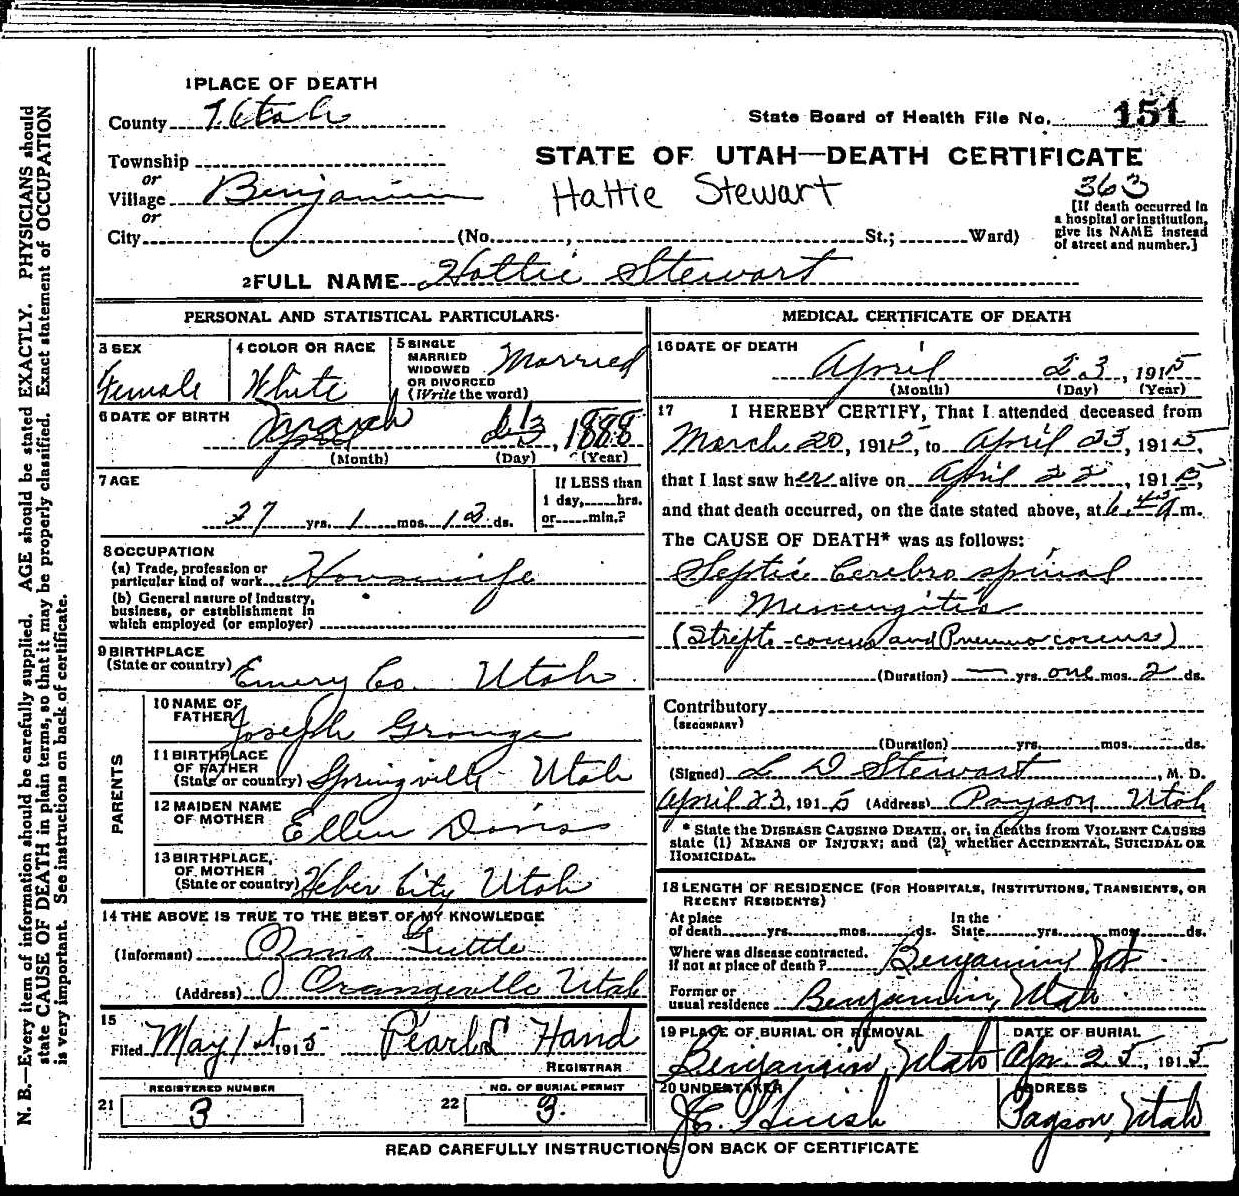 1 PLACE OF DEATH
County Utah
State Board of Health File No. 151
Township
or
Village Benjamin
or
City (No. , St.; Ward)
STATE OF UTAH—DEATH CERTIFICATE
Hattie Stewart
363
[If death occurred in a hospital or institution, give its NAME instead of street and number.]
2 FULL NAME Hattie Stewart
PERSONAL AND STATISTICAL PARTICULARS
3 SEX Female
4 COLOR OR RACE White
5 SINGLE MARRIED WIDOWED OR DIVORCED (Write the word) Married
6 DATE OF BIRTH March 1888
(Month) (Day) (Year)
7 AGE
27 yrs. 1 mos. 12 ds.
If LESS than 1 day, hrs. or min.?
8 OCCUPATION
(a) Trade, profession or particular kind of work Housewife
(b) General nature of Industry, business, or establishment in which employed (or employer)
9 BIRTHPLACE
(State or country) Emery Co. Utah
PARENTS
10 NAME OF FATHER Joseph Grange
11 BIRTHPLACE OF FATHER (State or country) Springville Utah
12 MAIDEN NAME OF MOTHER Ellen Davis
13 BIRTHPLACE, OF MOTHER (State or country) Heber City Utah
14 THE ABOVE IS TRUE TO THE BEST OF MY KNOWLEDGE
(Informant) Tuttle
(Address) Orangeville Utah
15
Filed May 1st 1915 Pearl Hand
REGISTRAR
REGISTERED NUMBER
21 3
NO. OF BURIAL PERMIT
22 3.
MEDICAL CERTIFICATE OF DEATH
16 DATE OF DEATH
April 23, 1915
(Month) (Day) (Year)
17 I HEREBY CERTIFY, That I attended deceased from
March 20, 1915, to April 23, 1915,
that I last saw her alive on April 22, 1915,
and that death occurred, on the date stated above, at 6.45 a m.
The CAUSE OF DEATH* was as follows:
Septic Cerebro spinal
Menengitis
(Strepto-coccus and Pneumo coccus)
(Duration) — yrs. one mos. 2 ds.
Contributory
(SECONDARY)
(Duration) yrs. mos. ds.
(Signed) L D Stewart, M. D.
April 23, 1915 (Address) Payson Utah
* State the DISEASE CAUSING DEATH, or, in deaths from VIOLENT CAUSES
state (1) MEANS OF INJURY; and (2) whether ACCIDENTAL, SUICIDAL OR
HOMICIDAL.
18 LENGTH OF RESIDENCE (FOR HOSPITALS, INSTITUTIONS, TRANSIENTS, OR
RECENT RESIDENTS)
At place of death yrs. mos. ds. In the State yrs. mos. ds.
Where was disease contracted, if not at place of death? Benjamin Ut.
Former or usual residence Benjamin, Utah
19 PLACE OF BURIAL OR REMOVAL Benjamin, Utah
DATE OF BURIAL Apr. 25, 1915
20 UNDERTAKER
ADDRESS Payson, Utah
READ CAREFULLY INSTRUCTIONS ON BACK OF CERTIFICATE
N. B.—Every item of information should be carefully supplied. AGE should be stated EXACTLY. PHYSICIANS should
state CAUSE OF DEATH in plain terms, so that it may be properly classified. Exact statement of OCCUPATION
is very important. See instructions on back of certificate.